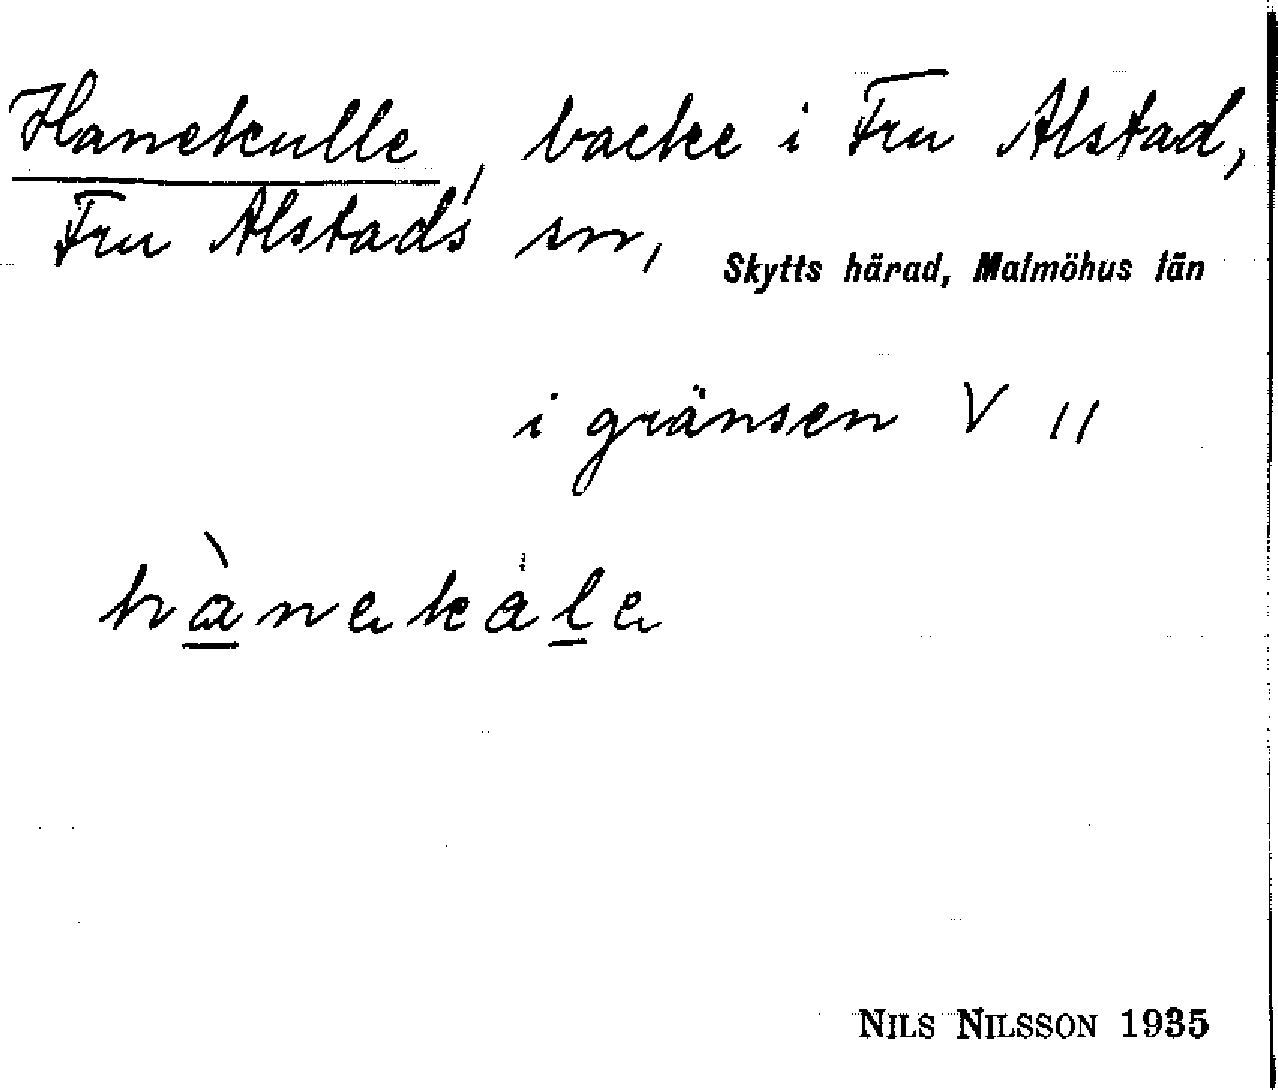 Hanekulle, backe i Fru Alstad,
Fru Alstads sn, Skytts härad, Malmöhus län
i gränsen V 11
hànekåle
NILS NILSSON 1935